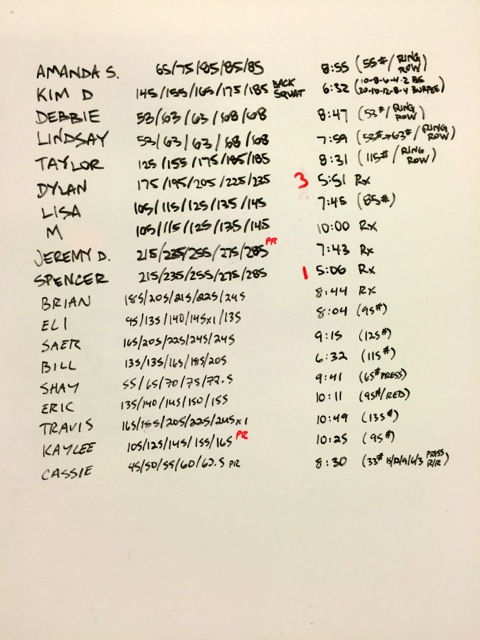 AMANDA S. 65/75/85/85/85 8:55 (55#/RING ROW)
KIM D 145/155/165/175/185 BACK SQUAT 6:32 (10-8-6-4-2 BS 20-16-12-8-4 BURPEES)
DEBBIE 53/63/63/68/68 8:47 (53#/RING ROW)
LINDSAY 53/63/63/68/68 7:59 (53#→63#/RING ROW)
TAYLOR 125/155/175/185/185 8:31 (115#/RING ROW)
DYLAN 175/195/205/225/235 3 5:51 RX
LISA 105/115/125/135/145 7:45 (85#)
M 105/115/125/135/145 10:00 RX
JEREMY D. 215/235/255/275/285 PR 7:43 RX
SPENCER 215/235/255/275/285 1 5:06 RX
BRIAN 185/205/215/225/245 8:44 RX
ELI 95/135/140/145x1/135 8:04 (95#)
SAER 165/205/225/245/245 9:15 (125#)
BILL 135/135/165/185/205 6:32 (115#)
SHAY 55/65/70/75/72.5 9:41 (65# PRESS)
ERIC 135/140/145/150/155 10:11 (95#/RED)
TRAVIS 165/185/205/225/245x1 10:49 (135#)
KAYLEE 105/125/145/155/165 PR 10:25 (95#)
CASSIE 45/50/55/60/62.5 PR 8:30 (33# 15/12/9/6/3 PRESS R/R)